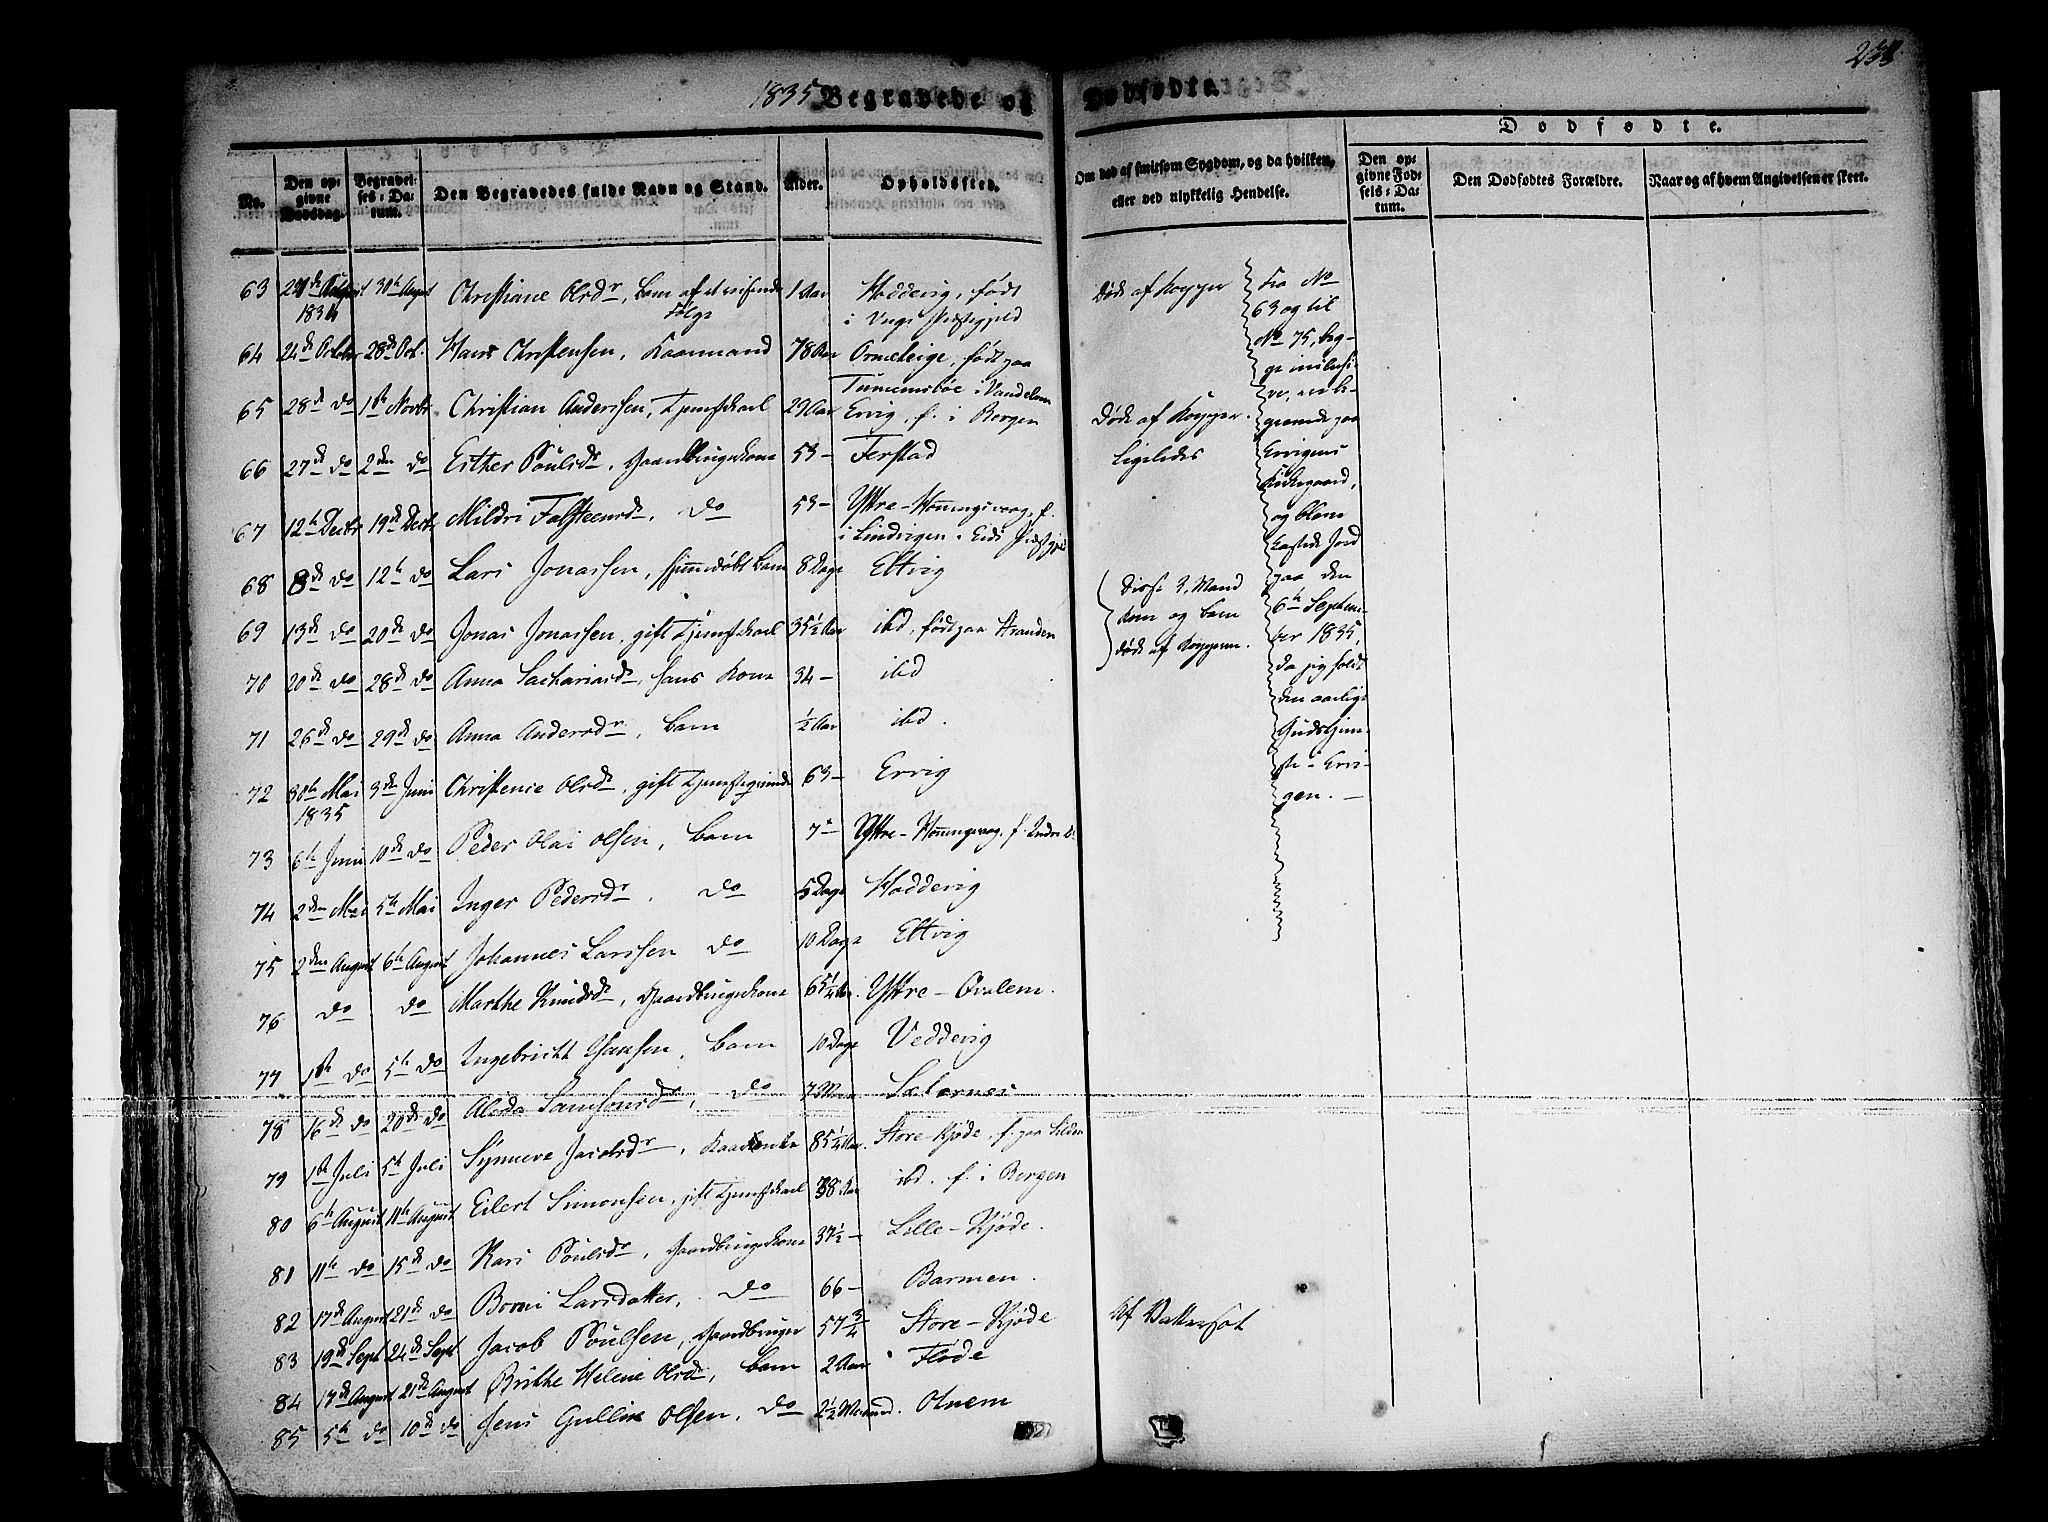 1835 Begravede og Dødfødte.
233
Dødfødte.
No.
Den opgivne Dødsdag.
Begravelses-Datum.
Den Begravedes fulde Navn og Stand.
Alder.
Opholdssted.
Om død af smitsom Sygdom, og da hvilken, eller ved ulykkelig Hendelse.
Den opgivne Fødsels-Datum.
Den Dødfødtes Forældre.
Naar og af hvem Angivelsen er skeet.
63 August 30th August Christiane Olsdr, Barn af et reisende 1 Aar Hoddevig, født Døde af Kopper
1834 Følge i Præstegjeld
64 24de October 28de Oct. Hans Christensen, Kaarmand 78 Aar født paa
65 28de do 1ste Novbr Christian Anderssen, Tjenestkarl 29 Aar Ervig, f. i Bergen Døde af Kopper.
66 27de do 2den do Esther Poulsdr, Gaardbrugerkone 53 – Ferstad Ligeledes
67 12te Decbr 19de Decbr Mildri Falsteensdr, do 53 – Yttre-Honningsvaag, f.
i Eids Præstgjeld
68 8de do 12te do Lars Jonassen, hjemmedøbt Barn 8 Dage Eltvig
69 13de do 20de do Jonas Jonassen, gift Tjenestkarl 35½ Aar ibd, født paa Stranden
70 20de do 28de do Anna Sachariasdr, hans Kone 34 – ibd
71 26de do 29de do Anna Andersdr, Barn ½ Aar ibd.
72 30te Mai 3die Juni Christence Olsdr, gift Tjenesteqvinde 63 – Ervig
1835
73 6te Juni 10de do Peder Olai Olsen, Barn 7 – Yttre-Honningsvaag, f. Indre
74 2den Mai 5te Mai Inger Pedersdr. do 5 Dage Hoddevig
75 2den August 6te August Johannes Larssen do 10 Dage Eltvig
76 do do Marthe Knudsdr, Gaardbrugerkone 65¼ Aar. Yttre-Qvalem.
77 1ste do 5te do Ingebricht Hansen, Barn 10 Dage Veddevig
78 16de do 20de do Alida Samsonsdr, do Sæternes
79 1ste Juli 5te Juli Synneve Jacobsdr, Kaarenke 85¼ Aar. Store-Kjøde, f. paa Silden
80 6te August 11te August Eilert Simonsen, gift Tjenestkarl 38 Aar ibd. f. i Bergen
81 11te do 15de do Kari Poulsdr, Gaardbrugerkone 37½ – Lille-Kjøde.
82 17de August 21de do Borni Larsdatter, do 66 – Barmen.
83 19de Sept 24de Sept Jacob Poulsen, Gaardbruger 57¾ Store-Kjøde Af Vattersot
84 17de August 21de August Brithe Helene Olsdr, Barn 2 Aar Fløde
85 5te do 10de do Jens Gullik Olsen, do 2½ Maaned. Otnem
Disse 3, Mand
Kone og Barn
døde af Kopperne.
Fra No
63 og til
No 75, begge inclusive, ere begravede paa
Ervigens
Kirkegaard,
og bleve
kastede Jord
paa den
6te September 1835,
da jeg holdt
den aarlige
Gudstjeneste i Ervigen. –